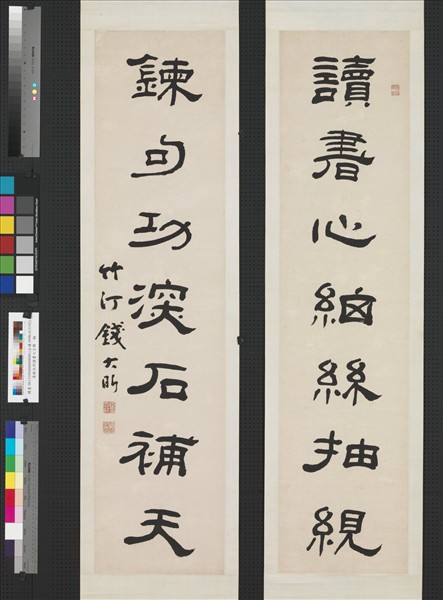 讀書心細絲抽絸
鍊句功深石補天
竹汀錢大昕